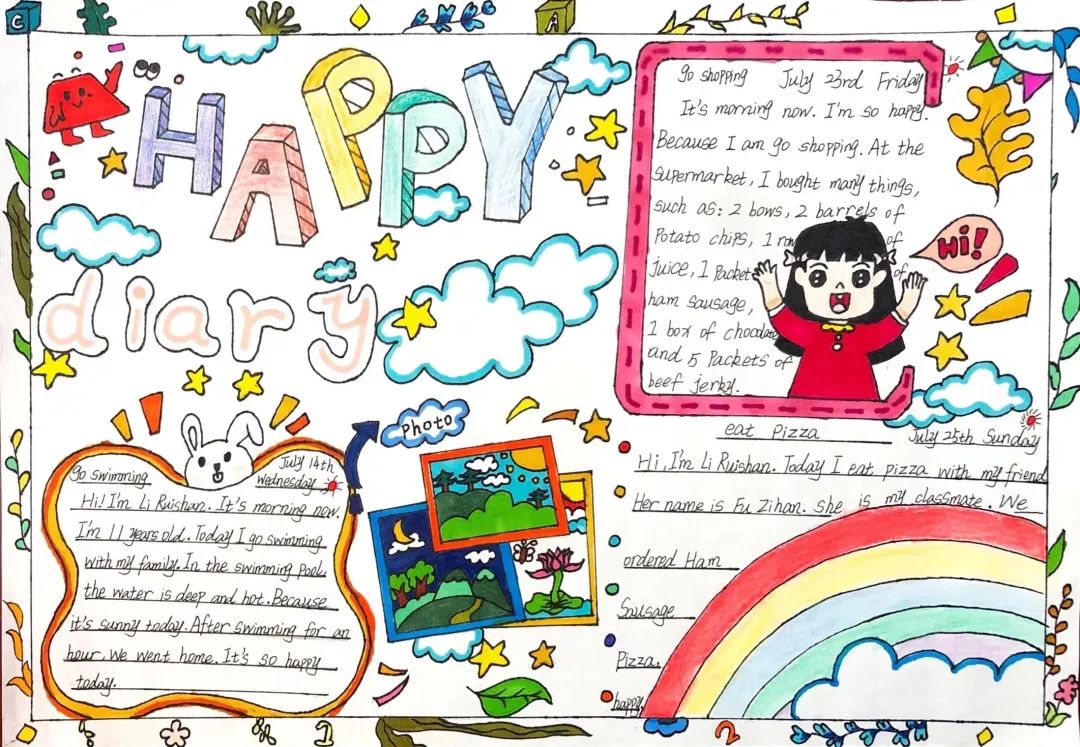 C
A
HAPPY
diary
go shopping July 23rd Friday
It's morning now. I'm so happy.
Because I am go shopping. At the
supermarket, I bought many things,
such as: 2 bows, 2 barrels of
Potato chips, 1 of
juice, 1 Packet of
ham sausage,
1 box of chocolate
and 5 Packets of
beef jerky.
Hi!
go swimming July 14th
Wednesday
Hi! I'm Li Ruishan. It's morning now.
I'm 11 years old. Today I go swimming
with my family. In the swimming pool,
the water is deep and hot. Because
it's sunny today. After swimming for an
hour. We went home. It's so happy
today.
Photo
eat Pizza July 25th Sunday
Hi, I'm Li Ruishan. Today I eat pizza with my friend
Her name is Fu Zihan. she is my classmate. We
ordered Ham
Sausage
Pizza.
happy
1
2